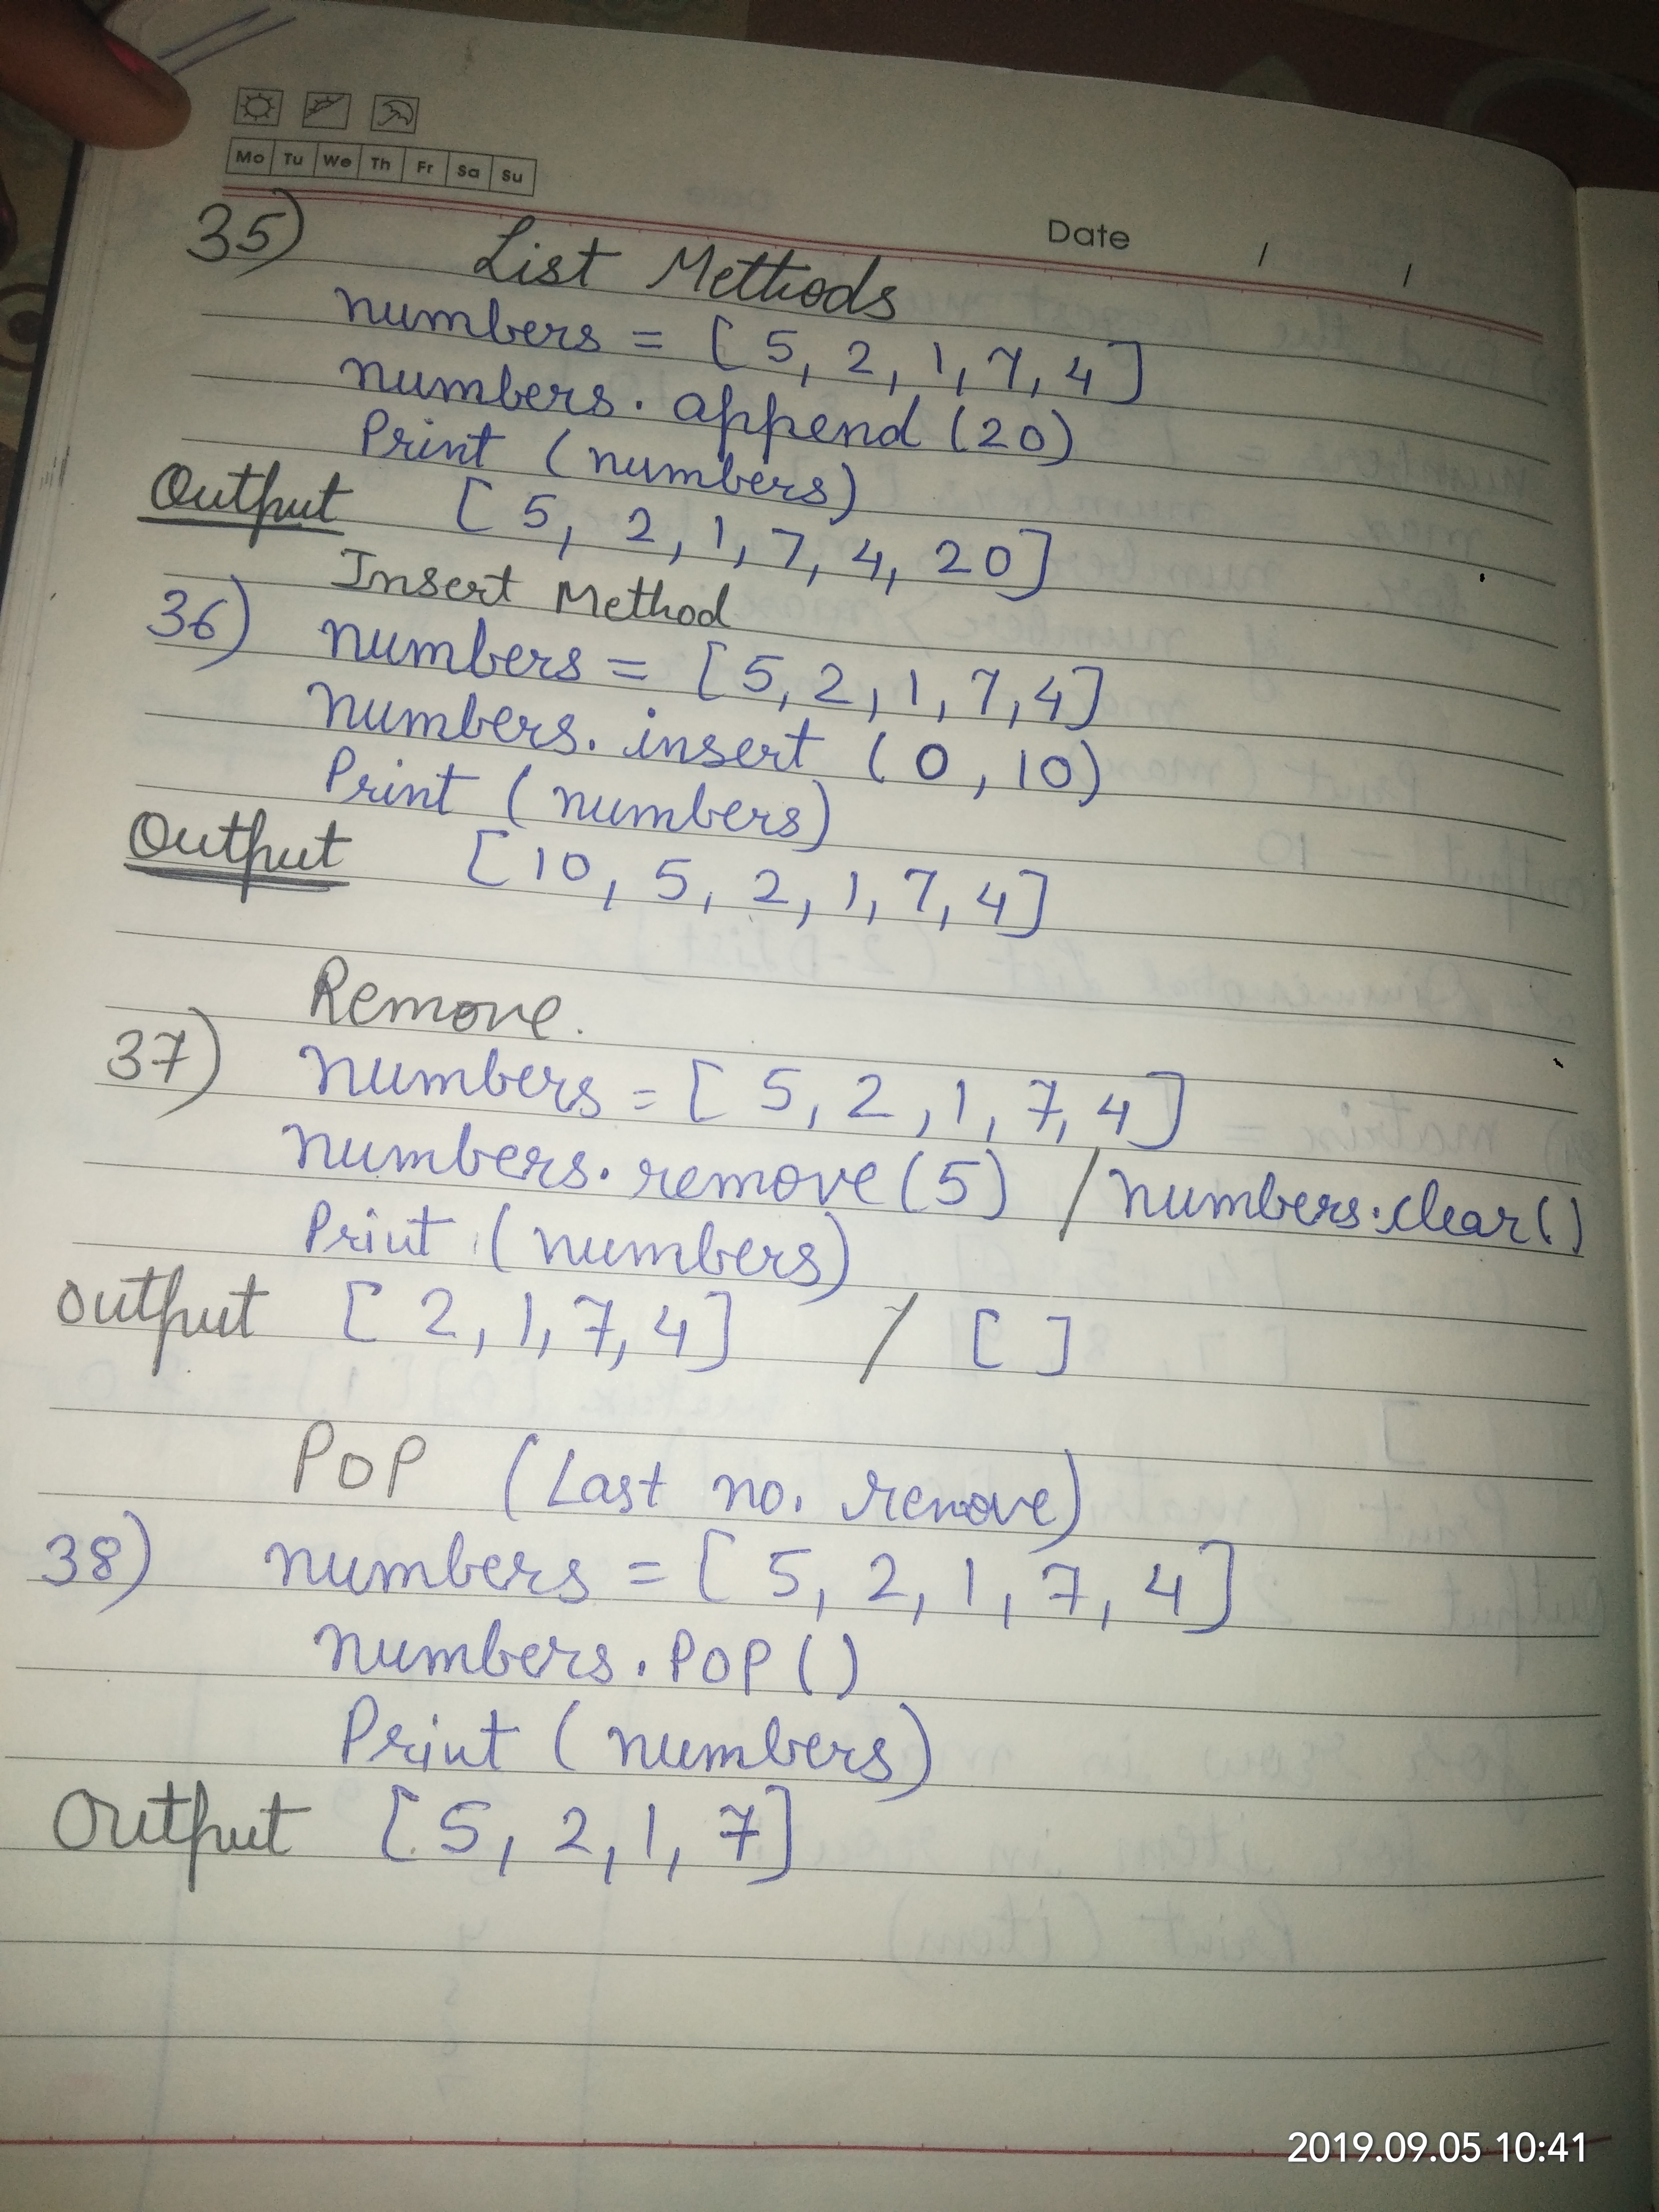 Mo Tu We Th Fr Sa Su
Date / /
35) List Methods
numbers = [5, 2, 1, 7, 4]
numbers.append(20)
Print (numbers)
Output [5, 2, 1, 7, 4, 20]
Insert Method
36) numbers = [5, 2, 1, 7, 4]
numbers.insert (0, 10)
Print (numbers)
Output [10, 5, 2, 1, 7, 4]
Remove.
37) numbers = [5, 2, 1, 7, 4]
numbers.remove(5) / numbers.clear()
Print (numbers)
output [2, 1, 7, 4] / [ ]
POP (Last no. remove)
38) numbers = [5, 2, 1, 7, 4]
numbers.POP()
Print (numbers)
Output [5, 2, 1, 7]
2019.09.05 10:41